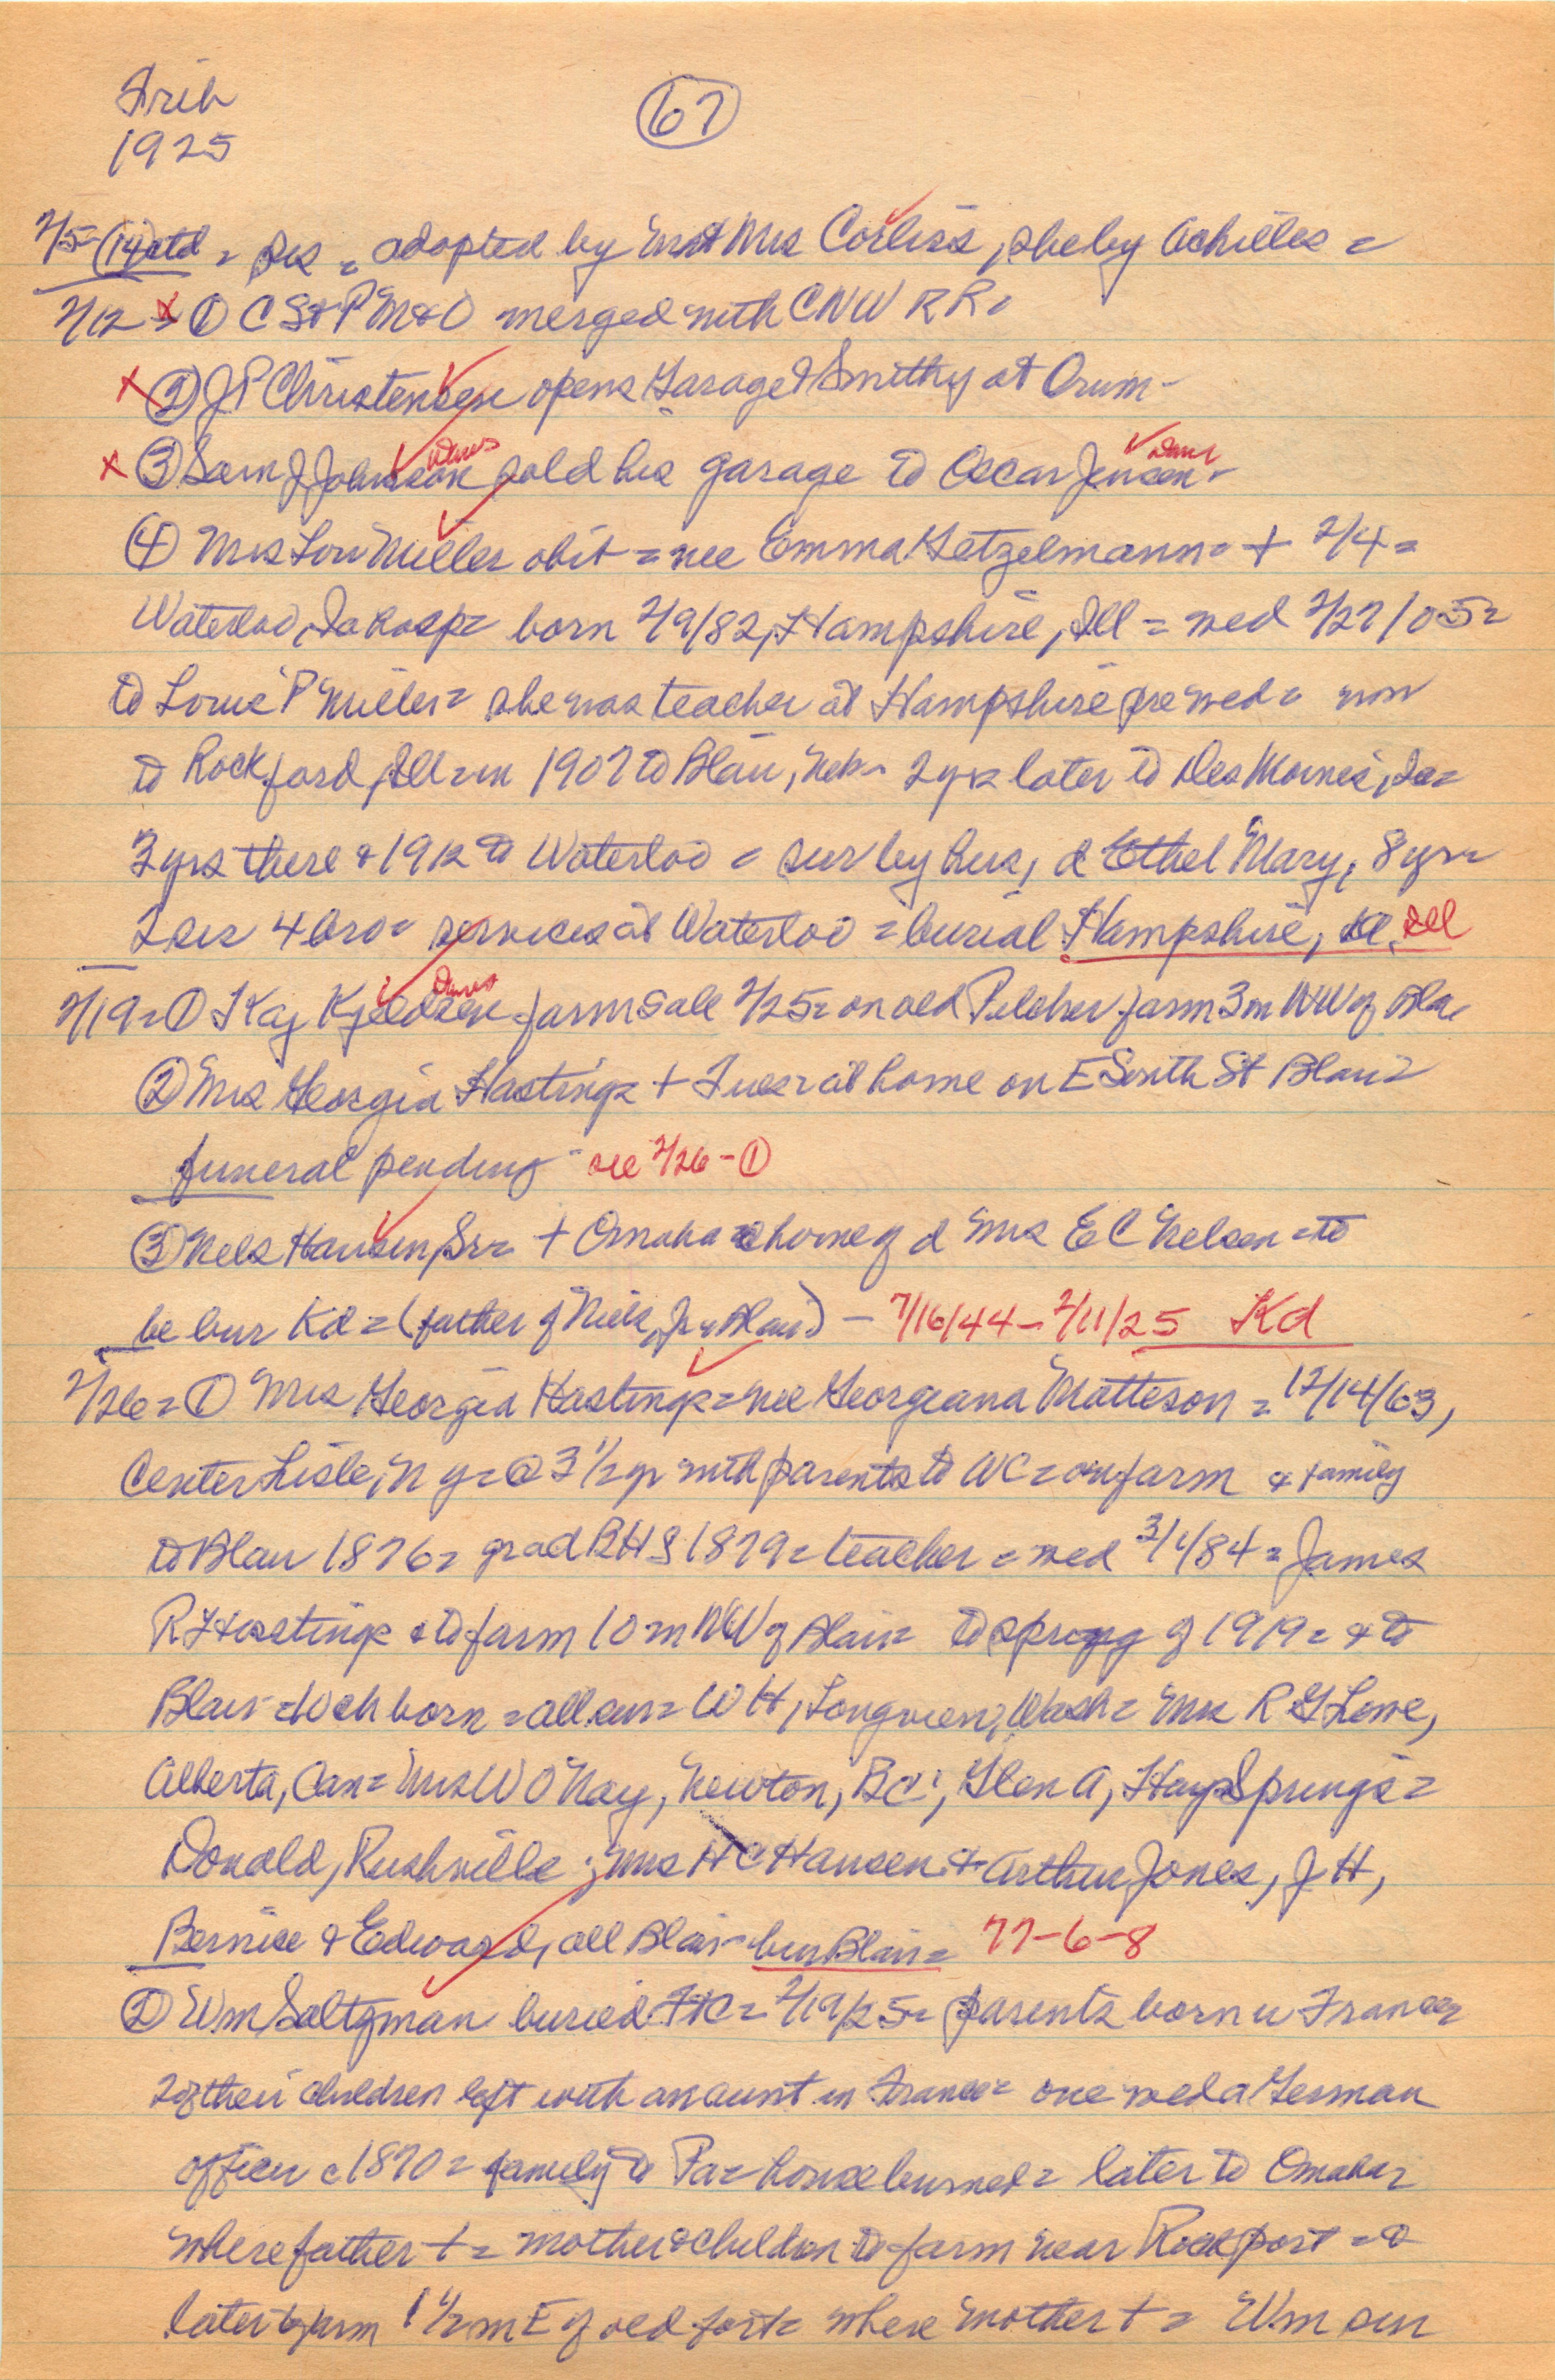 Trib
1925
67
2/5 = (14) ctd = sis = adopted by Mr & Mrs Corliss, she by Achilles =
2/12 = x ① C St P M & O merged with CNW RR =
x ② J P Christensen opens Garage & Smithy at Orum -
x ③ Sam J Johnson Danes sold his garage to Oscar Jensen Danes -
④ Mrs Lou Miller obit = nee Emma Getzelmann = + 2/4 =
Waterloo, Ia hosp = born 2/9/82, Hampshire, Ill = wed 2/27/05 =
to Louie P Miller = she was teacher at Hampshire pre wed =
to Rockford, Ill = in 1907 to Blair, Neb - 2 yrs later to Des Moines, Ia =
3 yrs there & 1912 to Waterloo = sur by hus, d Ethel Mary, 8 yr =
2 sis 4 bro = services at Waterloo = burial Hampshire, Ill. Ill
2/19 = ① Kaj Kjeldsen Danes farm sale 2/25 = on old Pilcher farm 3 m NW of Bla
② Mrs Georgia Hastings + Tues = at home on E South St Blair =
funeral pending - see 2/26 - ①
③ Nels Hansen, Sr = + Omaha = home of d Mrs E C Nelsen = to
be bur Kd = (father of Niels, Jr, Blair) - 7/16/44 - 2/11/25 Kd
2/26 = ① Mrs Georgia Hastings = nee Georgeana Matteson = 12/14/63,
Center Lisle, N Y = @ 3 1/2 yr with parents to WC = on farm & family
to Blair 1876 = grad BHS 1879 = teacher = wed 3/1/84 = James
R Hastings & to farm 10 m NW of Blair = to spring of 1919 = & to
Blair = 10 ch born = all sur = W H, Longview, Wash = Mrs R G Lowe,
Alberta, Can = Mrs W O Nay, Newton, BC; Glen A, Hay Springs =
Donald, Rushville; Mrs H C Hansen & Arthur Jones, J H,
Bernice & Edward, all Blair - bur Blair = 77-6-8
② Wm Saltzman buried FtC = 2/19/25 = parents born in France =
2 of their children left with an aunt in France = one wed a German
officer c 1870 = family to Pa = house burned = later to Omaha =
where father + = mother & children to farm near Rockport = &
later to farm 1 1/2 m E of old fort = where mother + = Wm sur